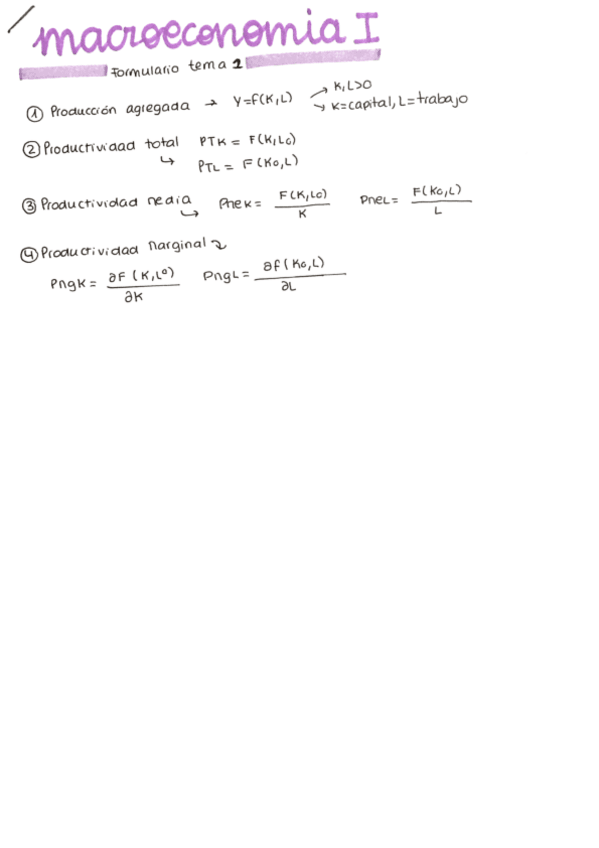 macroeconomia I
Formulario tema 1
① Producción agregada → Y=F(K,L) → K,L>0
→ K=capital, L=trabajo
② Productividad total PTK = F(K,L0)
↳ PTL = F(K0,L)
③ Productividad media ↳ PmeK = F(K,L0)/K PmeL = F(K0,L)/L
④ Productividad marginal
PmgK = ∂F(K,L0)/∂K PmgL = ∂F(K0,L)/∂L